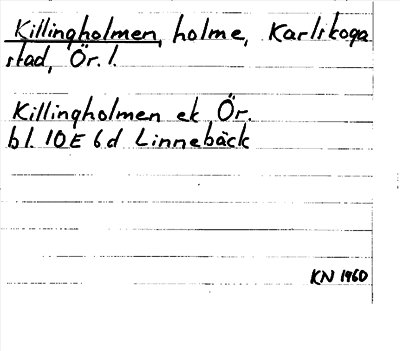 Killingholmen, holme, Karlskoga
stad, Ör. l.
Killingholmen ek Ör.
bl. 10E 6d Linnebäck
KN 1960